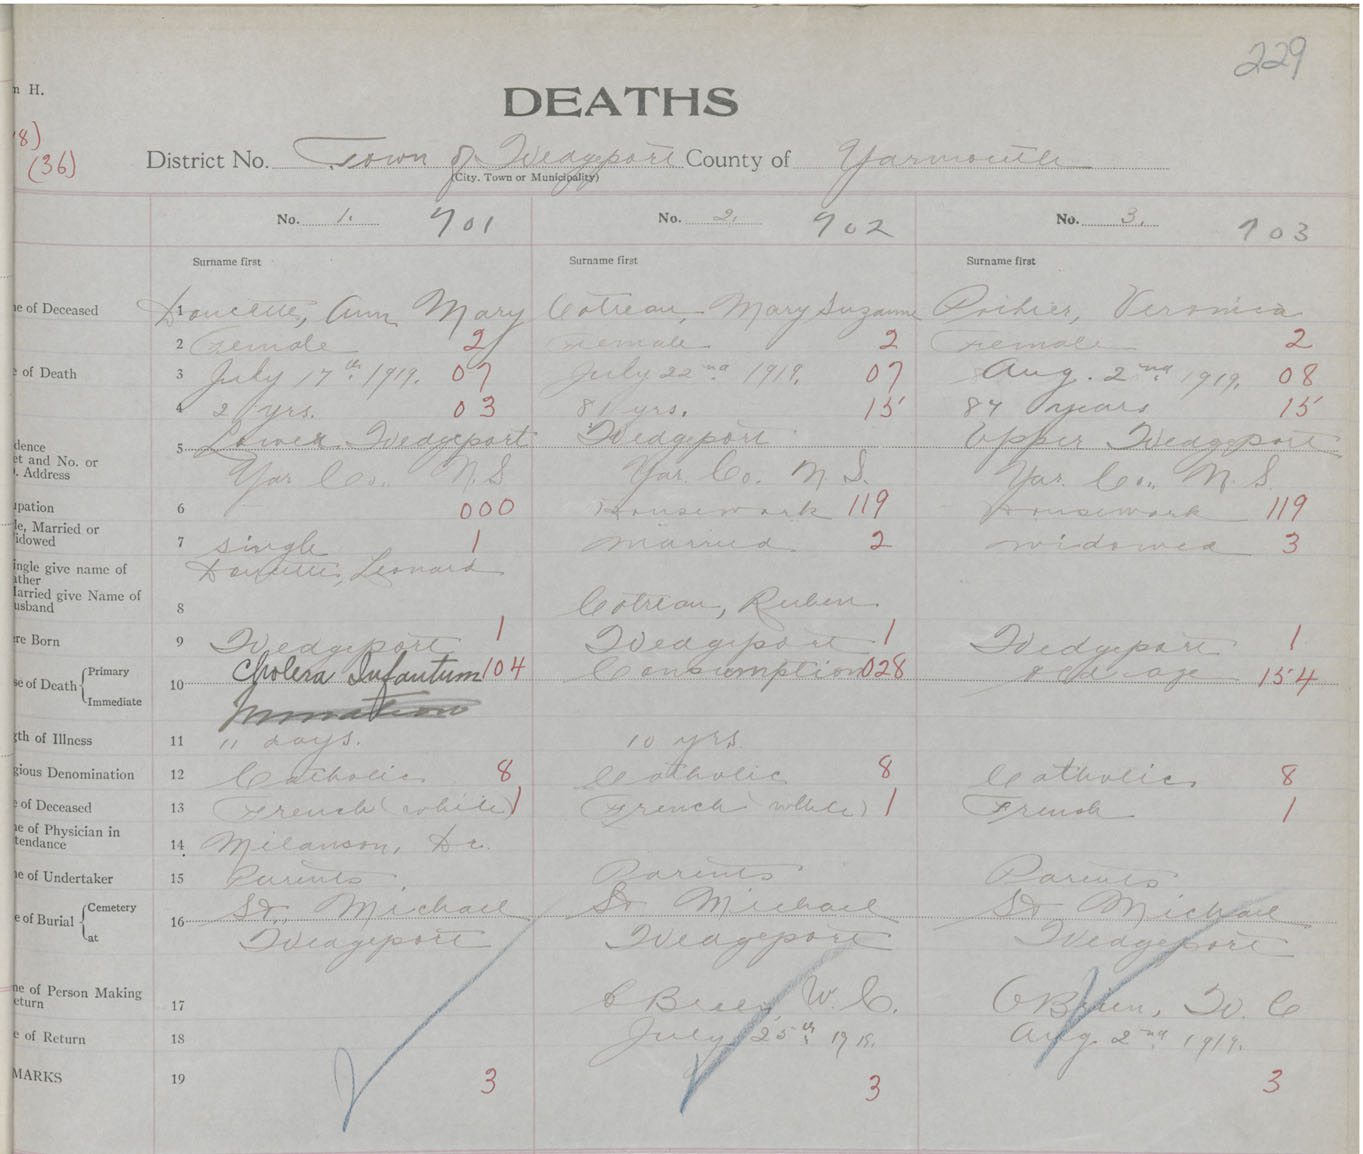 229
n H.
DEATHS
8)
(36)
District No. Town of Wedgeport County of Yarmouth
(City, Town or Municipality)
No. 1. 901 No. 2. 902 No. 3. 903
Surname first Surname first Surname first
ne of Deceased 1 Doucette, Ann Mary Cotreau, Mary Suzanne Pothier, Veronica
2 Female 2 Female 2 Female 2
e of Death 3 July 17th 1919. 07 July 22nd 1919. 07 Aug. 2nd 1919. 08
4 2 yrs. 03 81 yrs. 15 84 years 15
dence
et and No. or
. Address
5 Lower Wedgeport Wedgeport Upper Wedgeport
Yar Co., N.S Yar. Co. N.S. Yar. Co., N.S.
upation 6 000 Housework 119 Housework 119
le, Married or
idowed
7 single 1 married 2 widowed 3
ingle give name of
ather
Doucette, Leonard
arried give Name of
usband
8 Cotreau, Ruben
re Born 9 Wedgeport 1 Wedgeport 1 Wedgeport 1
se of Death Primary
Immediate
10 Cholera Infantum 104 Consumption 028 old age 154
gth of Illness 11 11 days. 10 yrs.
gious Denomination 12 Catholic 8 Catholic 8 Catholic 8
e of Deceased 13 French (white) 1 French (white) 1 French 1
ne of Physician in
tendance
14 Melanson, Dr.
ne of Undertaker 15 Parents Parents Parents
e of Burial Cemetery
at
16 St. Michael St Michael St Michael
Wedgeport Wedgeport Wedgeport
ne of Person Making
eturn
17 O'Brien, W. C. O'Brien, W. C
e of Return 18 July 25th 1919. Aug. 2nd 1919.
MARKS 19 3 3 3